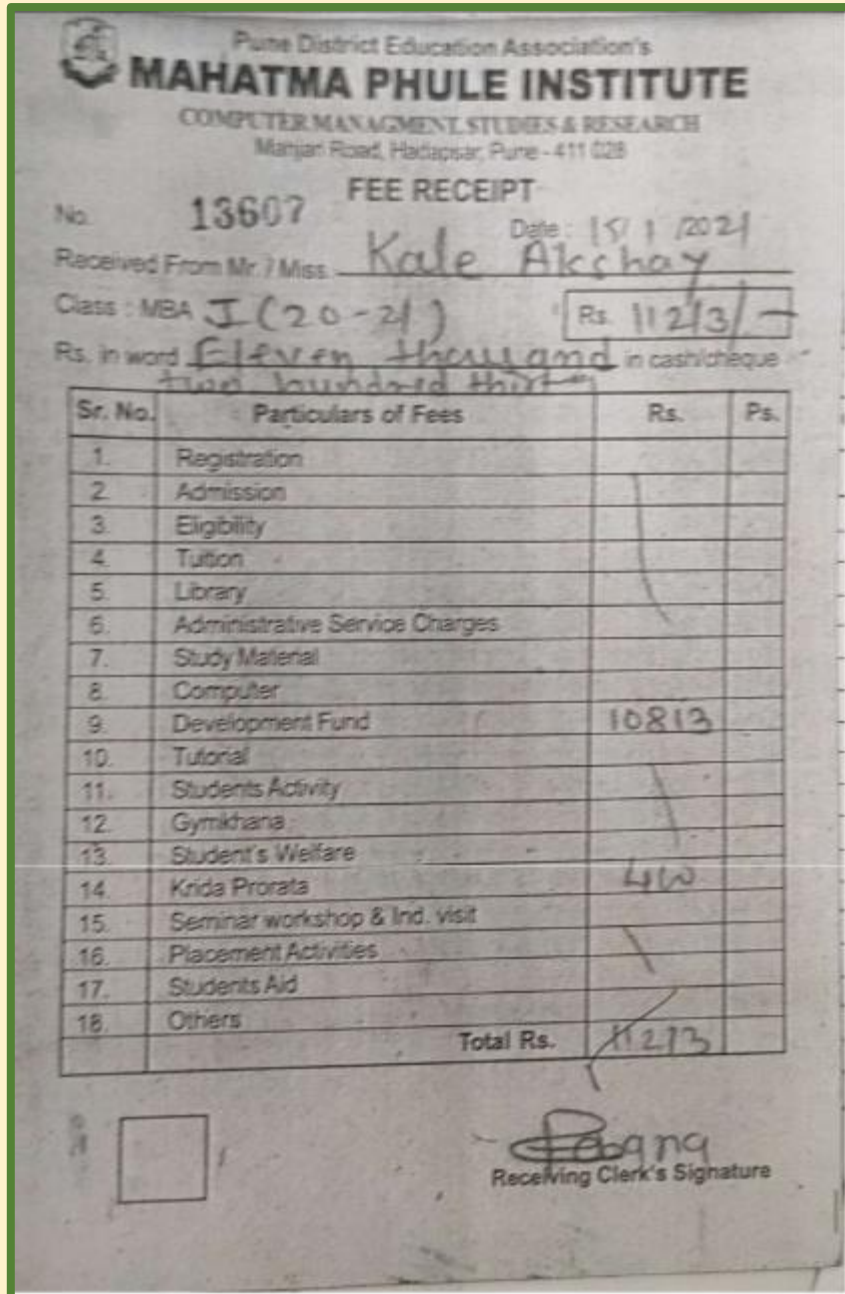 Pune District Education Association's
MAHATMA PHULE INSTITUTE
COMPUTER MANAGMENT STUDIES & RESEARCH
Manjari Road, Hadapsar, Pune - 411 028
FEE RECEIPT
No. 13607
Date : 15/1/2021
Received From Mr. / Miss. Kale Akshay
Class : MBA I (20-21) Rs. 11213/-
Rs. in word Eleven thousand in cash/cheque
two hundred
Sr. No. Particulars of Fees Rs. Ps.
1. Registration
2. Admission
3. Eligibility
4. Tuition
5. Library
6. Administrative Service Charges
7. Study Material
8. Computer
9. Development Fund 10813
10. Tutorial
11. Students Activity
12. Gymkhana
13. Student's Welfare
14. Krida Prorata 400
15. Seminar workshop & Ind. visit
16. Placement Activities
17. Students Aid
18. Others
Total Rs. 11213
Receiving Clerk's Signature